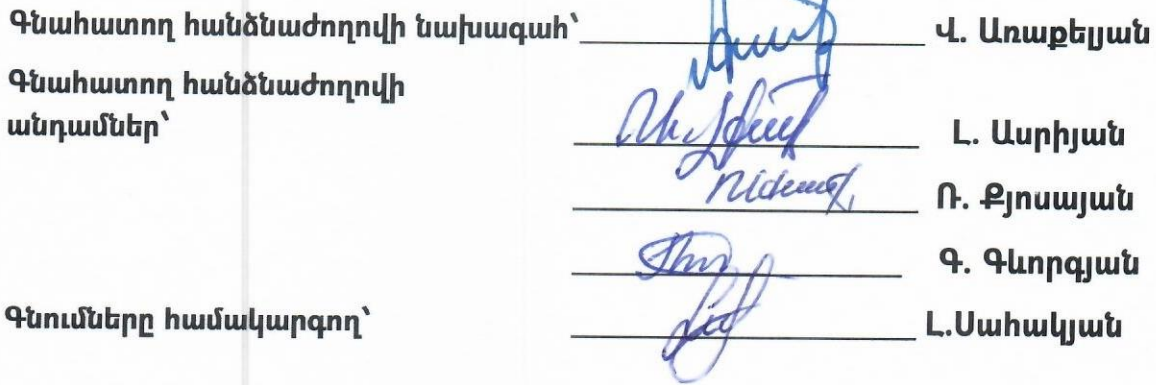 Գնահատող հանձնաժողովի նախագահ՝ Վ. Առաքելյան
Գնահատող հանձնաժողովի
անդամներ՝ Լ. Ասրիյան
Ռ. Քյոսայան
Գ. Գևորգյան
Գնումները համակարգող՝ Լ.Սահակյան